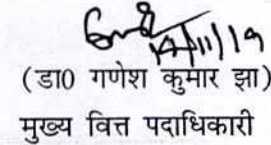 14/11/19
(डा0 गणेश कुमार झा)
मुख्य वित्त पदाधिकारी